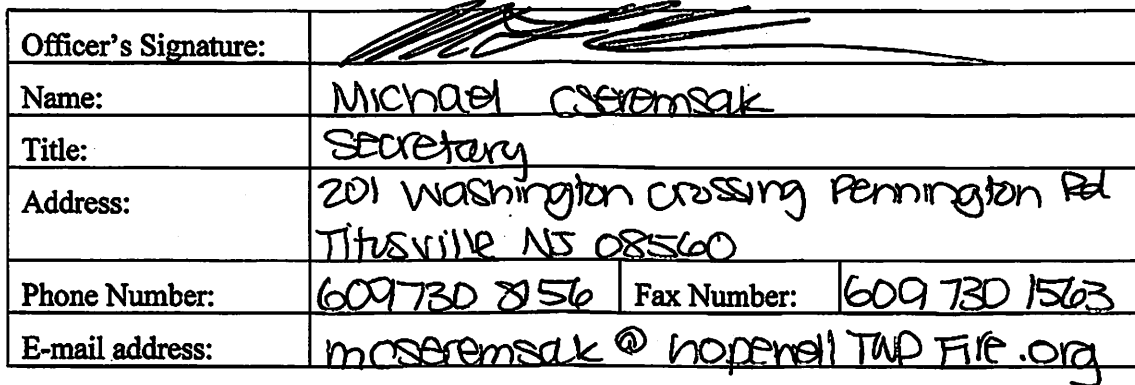 Officer's Signature:
Name: Michael Cseremsak
Title: Secretary
Address: 201 Washington Crossing Pennington Rd
Titusville NJ 08560
Phone Number: 609 730 8156 Fax Number: 609 730 1563
E-mail address: mcseremsak@hopewellTWPFire.org